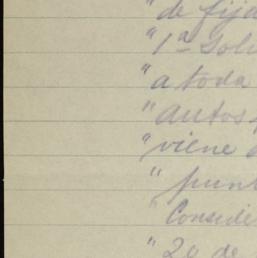 "de fija
"1ª Solu
"a toda
"autos
"viene a
"punt
"Conside
"20 de